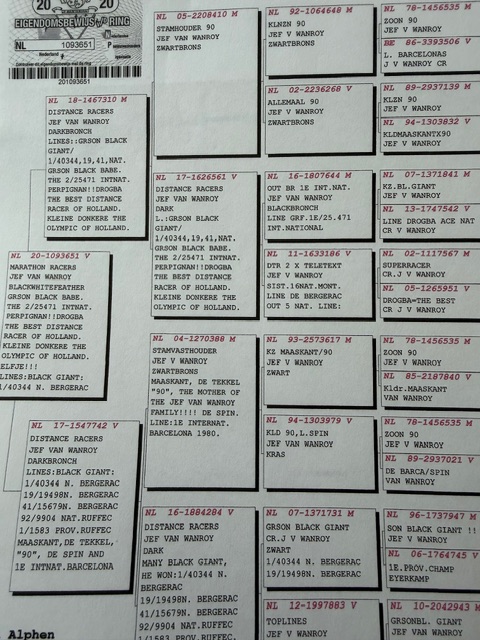 20 20
EIGENDOMSBEWIJS RING
NL 1093651
Nederland
201093651
NL 20-1093651 V
MARATHON RACERS
JEF V WANROY
BLACKWHITEFEATHER
GRSON BLACK BABE.
THE 2/25471 INTNAT.
PERPIGNAN!!DROGBA
THE BEST DISTANCE
RACER OF HOLLAND.
KLEINE DONKERE THE
OLYMPIC OF HOLLAND.
ELFJE!!!
LINES:BLACK GIANT:
1/40344 N. BERGERAC
NL 18-1467310 M
DISTANCE RACERS
JEF V WANROY
DARKBRONCH
LINES::GRSON BLACK
GIANT/
1/40344,19,41,NAT.
GRSON BLACK BABE.
THE 2/25471 INTNAT.
PERPIGNAN!!DROGBA
THE BEST DISTANCE
RACER OF HOLLAND.
KLEINE DONKERE THE
OLYMPIC OF HOLLAND.
NL 17-1547742 V
DISTANCE RACERS
JEF V WANROY
DARKBRONCH
LINES:BLACK GIANT:
1/40344 N. BERGERAC
19/19498N. BERGERAC
41/15679N. BERGERAC
92/9904 NAT.RUFFEC
1/1583 PROV.RUFFEC
MAASKANT,DE TEKKEL,
"90", DE SPIN AND
1E INTNAT.BARCELONA
Alphen
NL 05-2208410 M
STAMHOUDER 90
JEF VAN WANROY
ZWARTBRONS
NL 17-1626561 V
DISTANCE RACERS
JEF V WANROY
DARK
L.:GRSON BLACK
GIANT/
1/40344,19,41,NAT.
GRSON BLACK BABE.
THE 2/25471 INTNAT.
PERPIGNAN!!DROGBA
THE BEST DISTANCE
RACER OF HOLLAND.
KLEINE DONKERE THE
OLYMPIC OF HOLLAND.
NL 04-1270388 M
STAMVASTHOUDER
JEF V WANROY
ZWARTBRONS
MAASKANT, DE TEKKEL
"90", THE MOTHER OF
THE JEF VAN WANROY
FAMILY!!!! DE SPIN.
LINE:1E INTERNAT.
BARCELONA 1980.
NL 16-1884284 V
DISTANCE RACERS
JEF V WANROY
DARK
MANY BLACK GIANT,
HE WON:1/40344 N.
BERGERAC
19/19498N. BERGERAC
41/15679N. BERGERAC
92/9904 NAT.RUFFEC
1/1583 PROV.RUFFEC
NL 92-1064648 M
KLNZN 90
JEF V WANROY
ZWARTBRONS
NL 02-2236268 V
ALLEMAAL 90
JEF V WANROY
ZWARTBRONS
NL 16-1807644 M
OUT BR 1E INT.NAT.
JEF V WANROY
BLACKBRONCH
LINE GRF.1E/25.471
INT.NATIONAL
NL 11-1633186 V
DTR 2 X TELETEXT
JEF V WANROY
SIST.16NAT.MONT.
LINE DE BERGERAC
OUT 5 NAT. LINE:
NL 93-2573617 M
KZ MAASKANT/90
JEF V WANROY
ZWART
NL 94-1303979 V
KLD 90,L.SPIN
JEF VAN WANROY
KRAS
NL 07-1371731 M
GRSON BLACK GIANT
CR.J V WANROY
ZWART
1/40344 N. BERGERAC
19/19498N. BERGERAC
NL 12-1997883 V
TOPLINES
JEF V WANROY
NL 78-1456535 M
ZOON 90
JEF V WANROY
BE 86-3393506 V
L. BARCELONAS
J V WANROY CR
NL 89-2937139 M
KLZN 90
JEF V WANROY
NL 94-1303832 V
KLDMAASKANTX90
JEF V WANROY
NL 07-1371841 M
KZ.BL.GIANT
JEF V WANROY
NL 13-1747542 V
LINE DROGBA ACE NAT
CR V WANROY
NL 02-1117567 M
SUPERRACER
CR.J V WANROY
NL 05-1265951 V
DROGBA=THE BEST
CR J V WANROY
NL 78-1456535 M
ZOON 90
JEF V WANROY
NL 85-2187840 V
Kldr.MAASKANT
VAN WANROY
NL 78-1456535 M
ZOON 90
JEF V WANROY
NL 89-2937021 V
DE BARCA/SPIN
VAN WANROY
NL 96-1737947 M
SON BLACK GIANT !!
CR J V WANROY
NL 06-1764745 V
1E.PROV.CHAMP
EYERKAMP
NL 10-2042943 M
GRSONBL. GIANT
JEF V WANROY